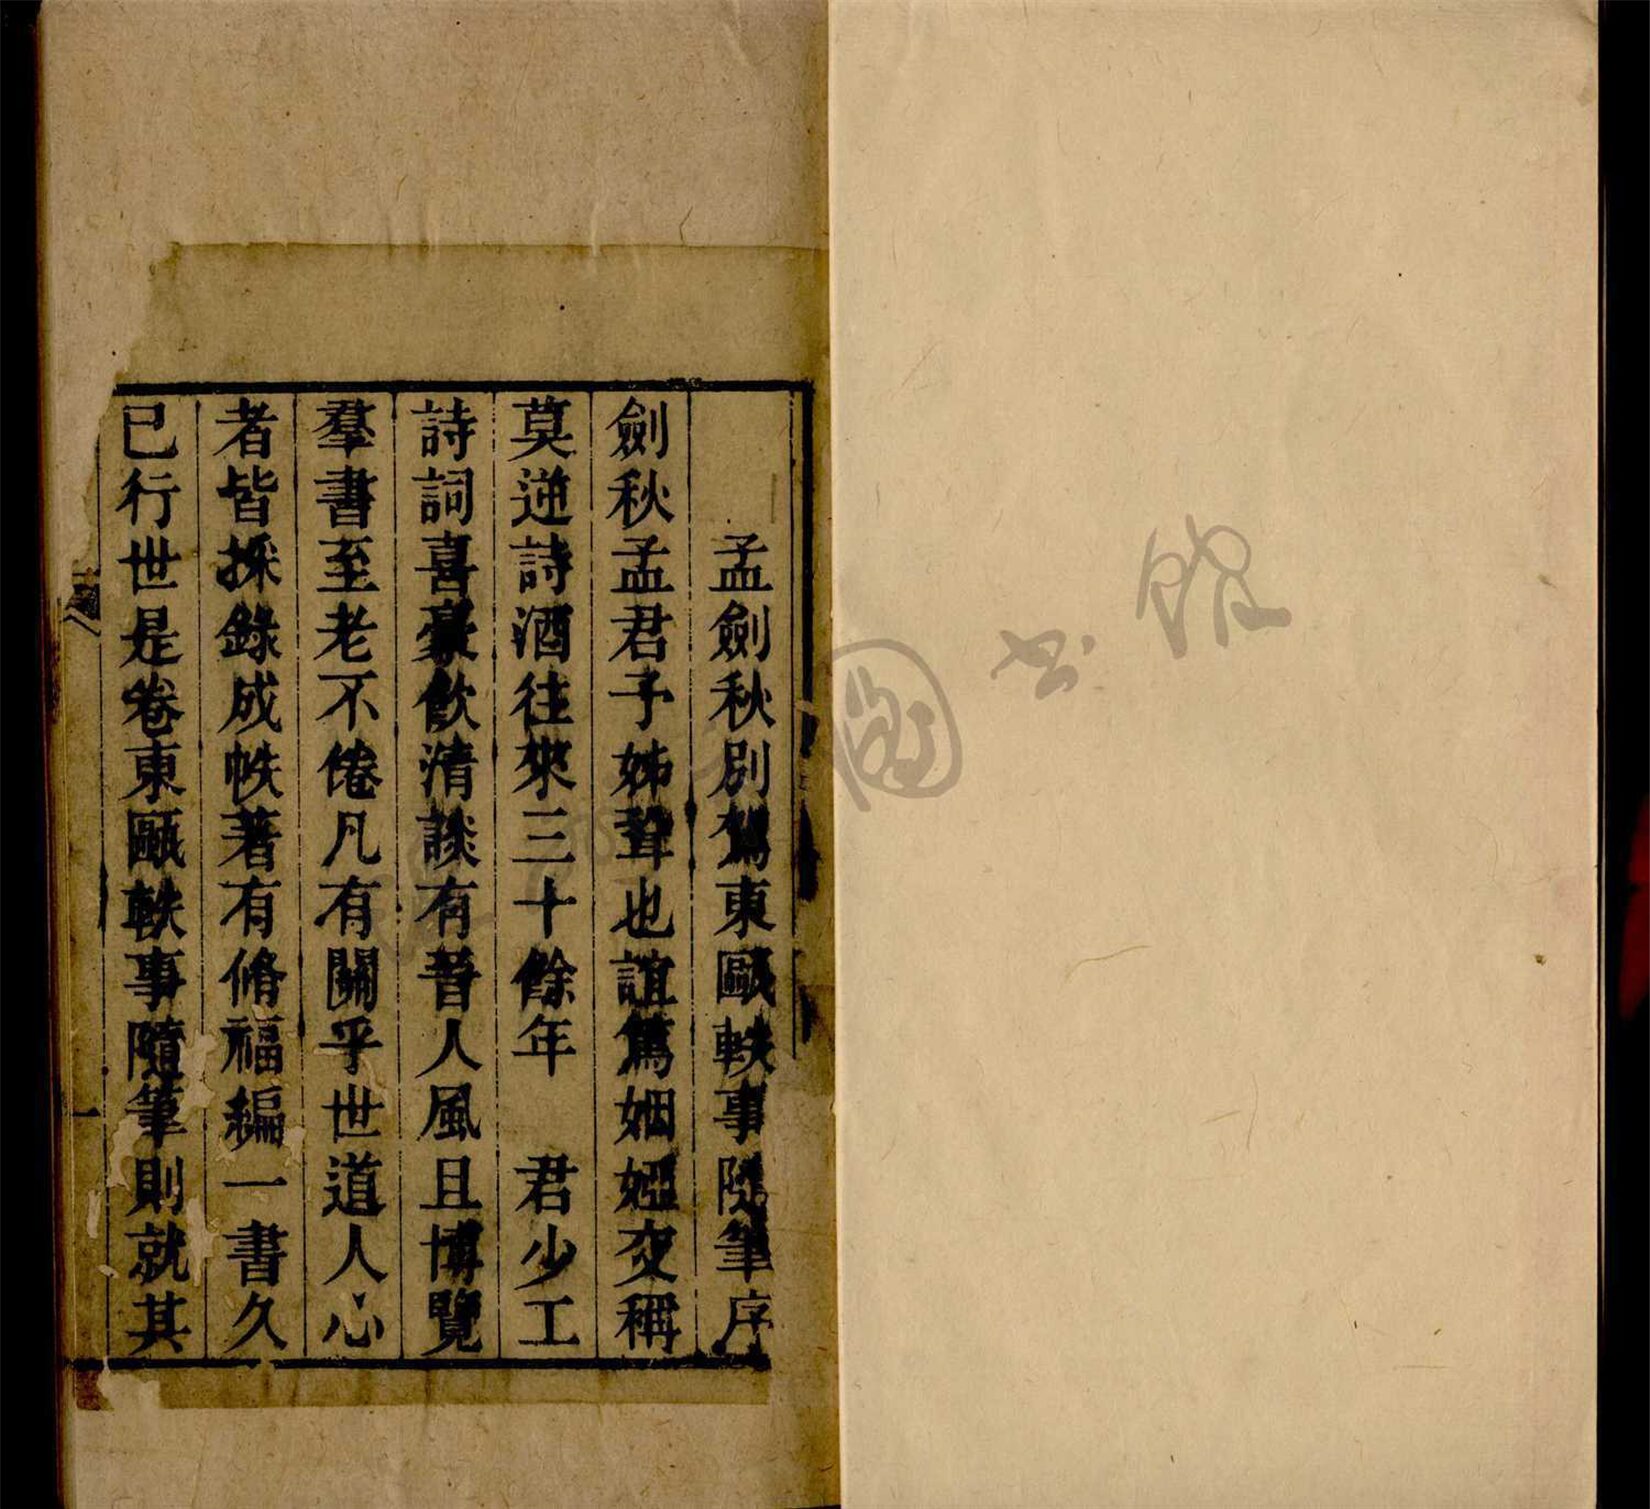 孟劍秋別駕東甌軼事隨筆序
劍秋孟君予姊聟也誼篤姻婭交稱
莫逆詩酒往來三十餘年 君少工
詩詞喜豪飲清談有晉人風且博覽
羣書至老不倦凡有關乎世道人心
者皆採錄成帙著有脩福編一書久
已行世是卷東甌軼事隨筆則就其